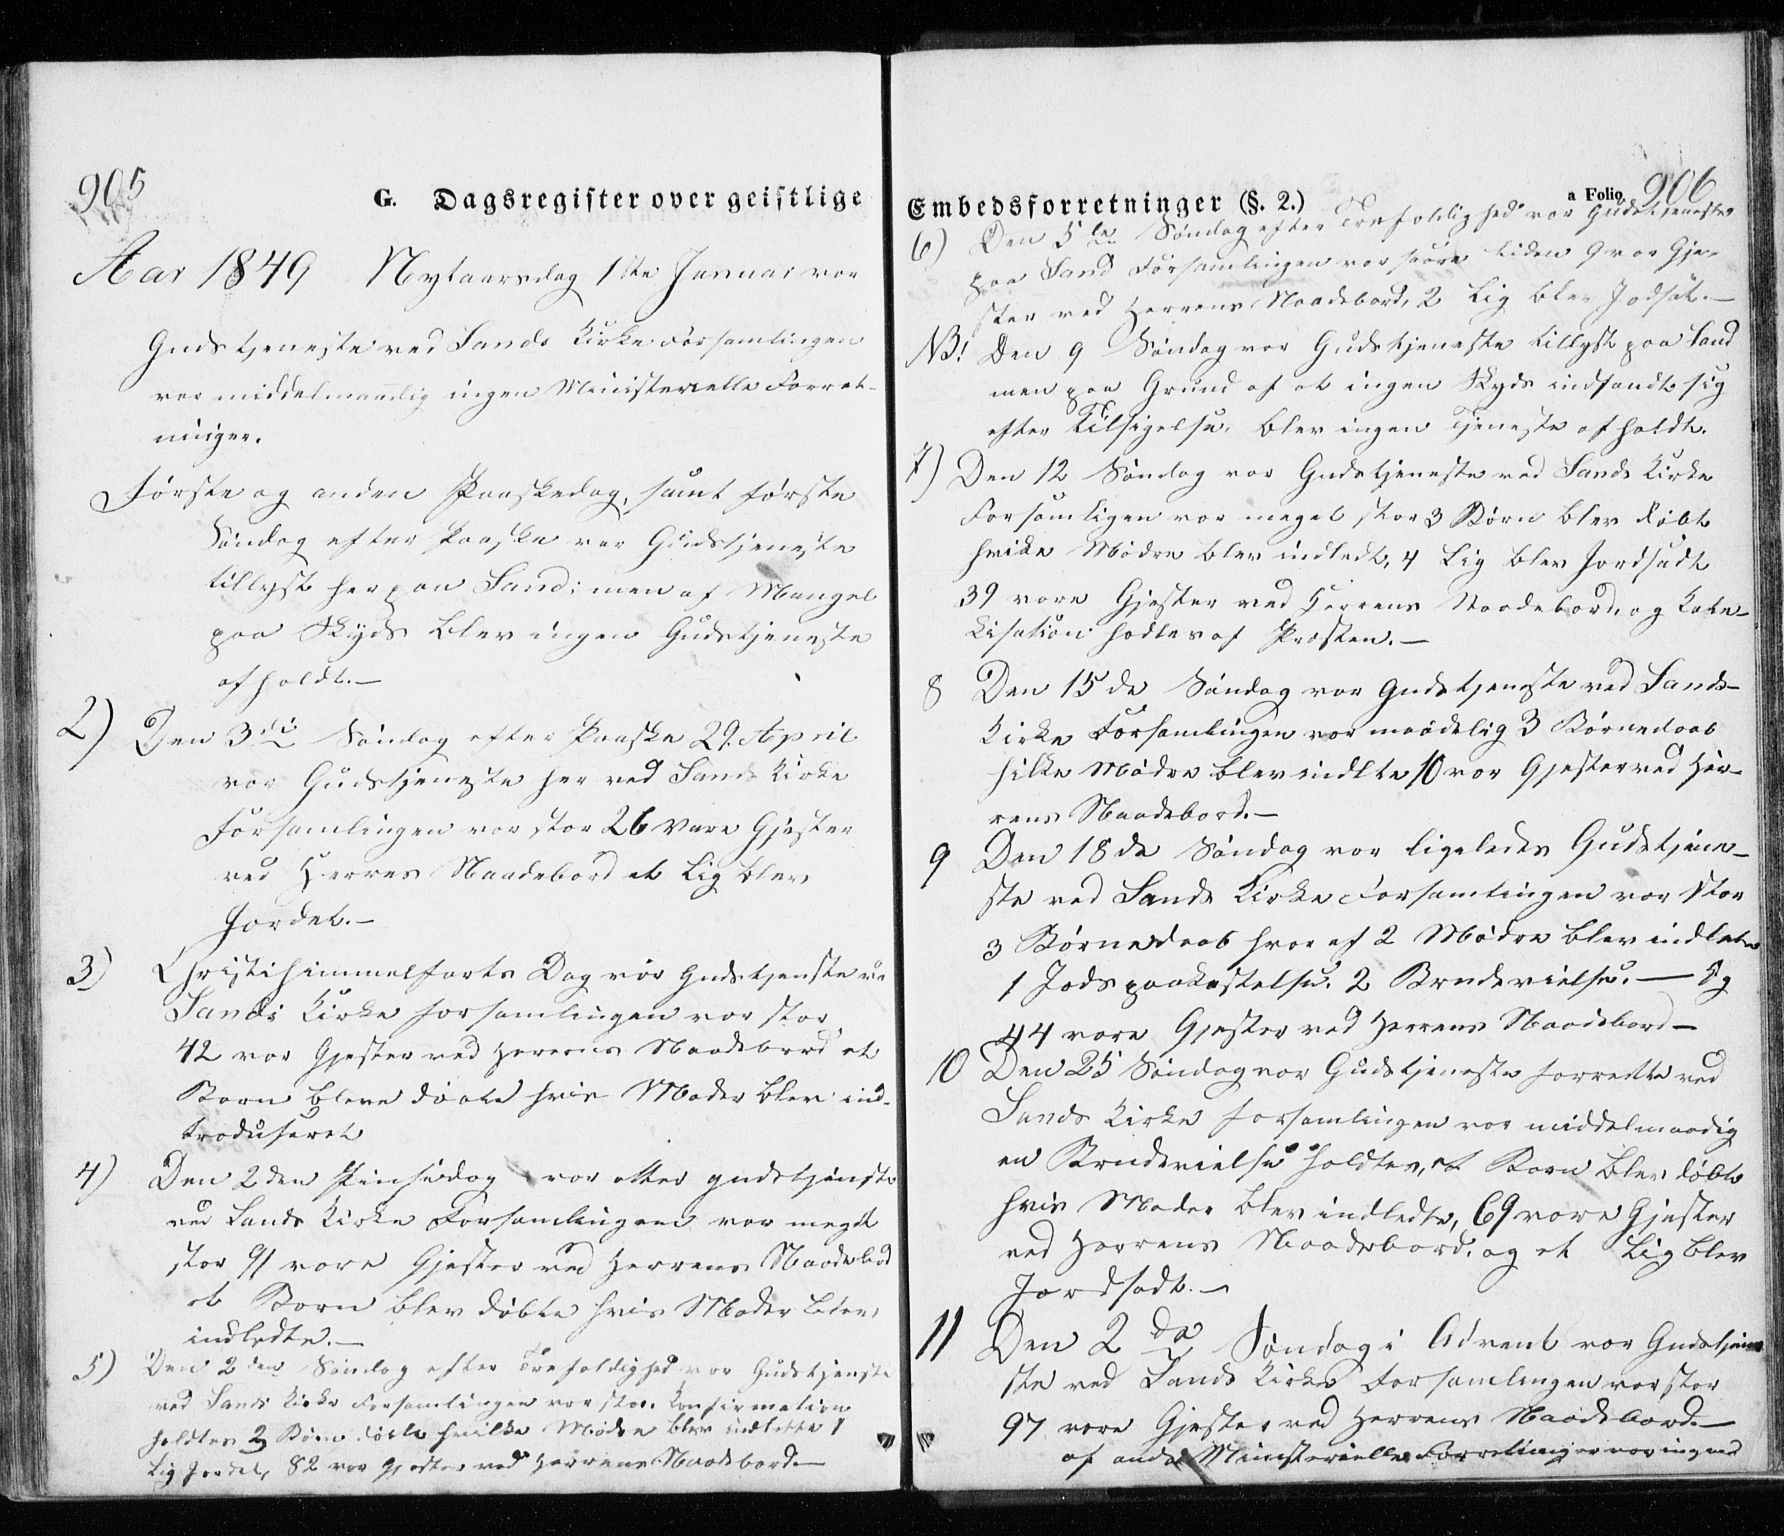 905
G. Dagsregister over geistlige
Aar 1849 Nytaarsdag 1ste Januar var
Gudstjeneste ved Sands Kirke Forsamlingen
var middelmaadig ingen Ministerielle Forret-
ninger.
Første og anden Paaskedag, samt første
Søndag efter Paaske var Gudstjeneste
tillyst her paa Sand; men af Mangel
paa Skyds blev ingen Gudstjeneste
afholdt.—
2) Den 3die Søndag efter Paaske 29. April
var Gudstjeneste her ved Sands Kirke
Forsamlingen var stor 26 vare Gjester
ved Herres Naadebord et Lig blev
Jordet.—
3) Christihimmelfarts Dag var Gudstjenste ve
Sands Kirke forsamlingen var stor
42 var Gjester ved Herrens Naadebord et
Barn bleve døbte hvis Moder blev ind-
troduseret
4) Den 2den Pinsedag var atter gudstjenste
ved Sands Kirke Forsamlingen var meget
stor 91 vare Gjester ved Herrens Naadebord
et Barn blev døbte hvis Moder blev
indledte.—
5) Den 2den Søndag efter Trefoldighed var Gudstjenste
ved Sands Kirke Forsamlingen var stor. Konfirmation
holdtes 2 Børn døbte hvilke Mødre blev indledte 1
Lig Jordet, 82 var Gjester ved Herrens Naadebord.—
Embedsforretninger (§. 2.) a Folio 906
6) Den 5te Søndag efter Trefoldighed var Gudstjeneste
paa Sand Forsamlingen var liden 9 var Gje-
ster ved Herrens Naadebord, 2 Lig blev Jodsat.—
NB! Den 9 Søndag var Gudstjeneste tillyst paa Sand
men paa Grund af at ingen Skyds indfandt sig
efter Tilsigelse, blev ingen Tjeneste afholdt.
7) Den 12 Søndag var Gudstjeneste ved Sands Kirke
Forsamligen var meget stor 3 Børn blev døbt
hvike Mødre blev indledt, 4 Lig blev Jordsadt
39 vare Gjester ved Herrens Naadebord, og Kate-
kisation holtes af Præsten.—
8 Den 15de Søndag var Gudstjeneste ved Sands-
Kirke Forsamlingen var maadelig 3 Børnedaab
hilke Mødre blev indlte 10 var Gjester ved Her-
rens Naadebord.—
9 Den 18de Søndag var ligeledes Gudstjene-
ste ved Sands Kirke Forsamlingen var stor
3 Børnedaab hvor af 2 Mødre blev indledte
1 Jodspaakastelse. 2 Brudevielse.— Og
44 vare Gjester ved Herrens Naadebord—
10 Den 25 Søndag var Gudstjeneste forrette ved
Sands Kirke forsamlingen var middelmaadig
en Brudevielse holdtes, et Barn blev døbte
hvis Moder blev indledte, 69 vare Gjester
ved Herrens Naadebord. og et Lig blev
Jordsadt.—
11 Den 2da Søndag i Advent var Gudstjene
ste ved Sands Kirke Forsamlingen var stor
97 vare Gjester ved Herrens Naadebord.—
af andre Ministerielle Forretninger var ingen